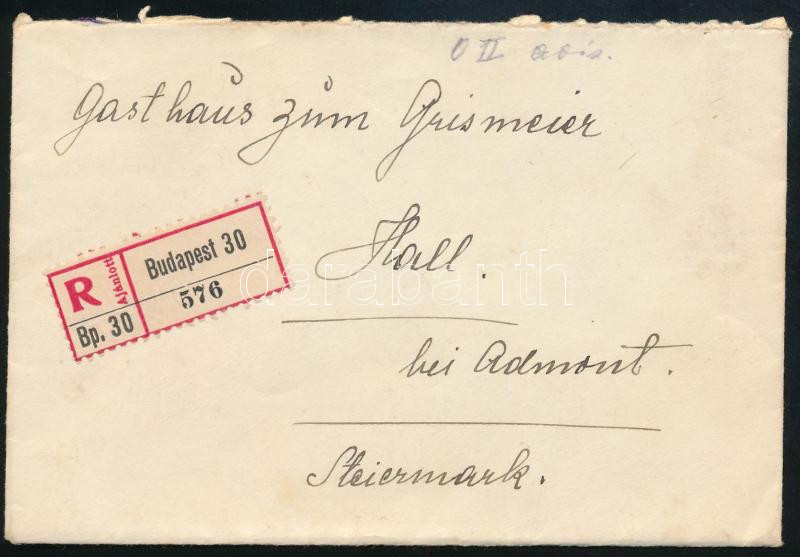 O II avis.
Gasthaus zum Grismeier
R Ajánlott Budapest 30
Bp. 30 576
Hall.
bei Admont.
Steiermark.
darabanth